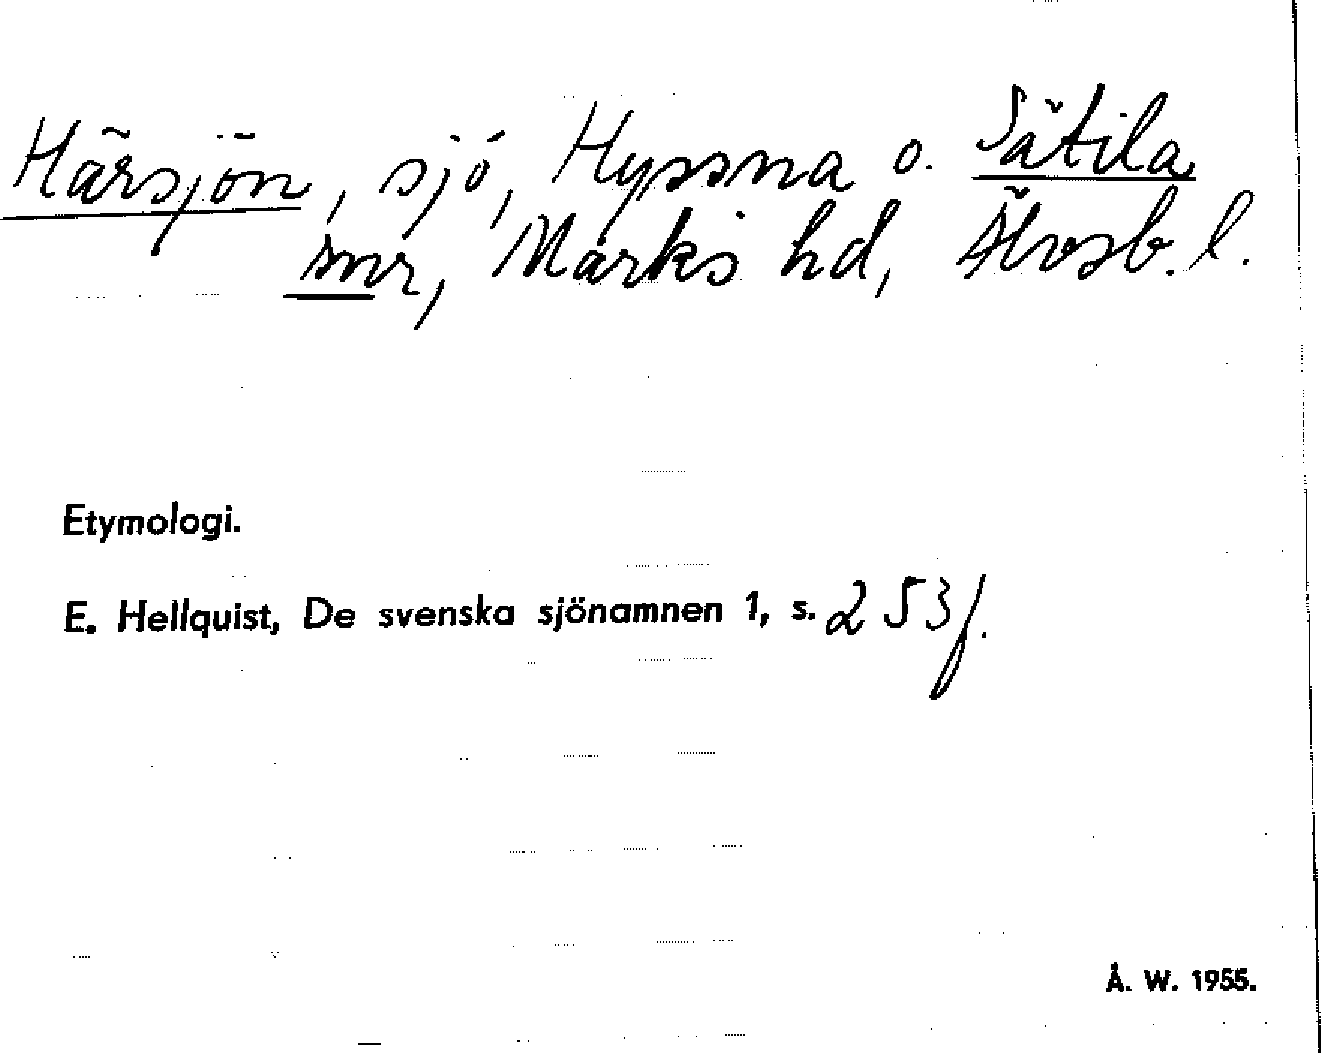 Härsjön, sjö, Hyssna o. Sätila
snr, Marks hd, Älvsb. l.
Etymologi.
E. Hellquist, De svenska sjönamnen 1, s. 253 f.
Å. W. 1955.